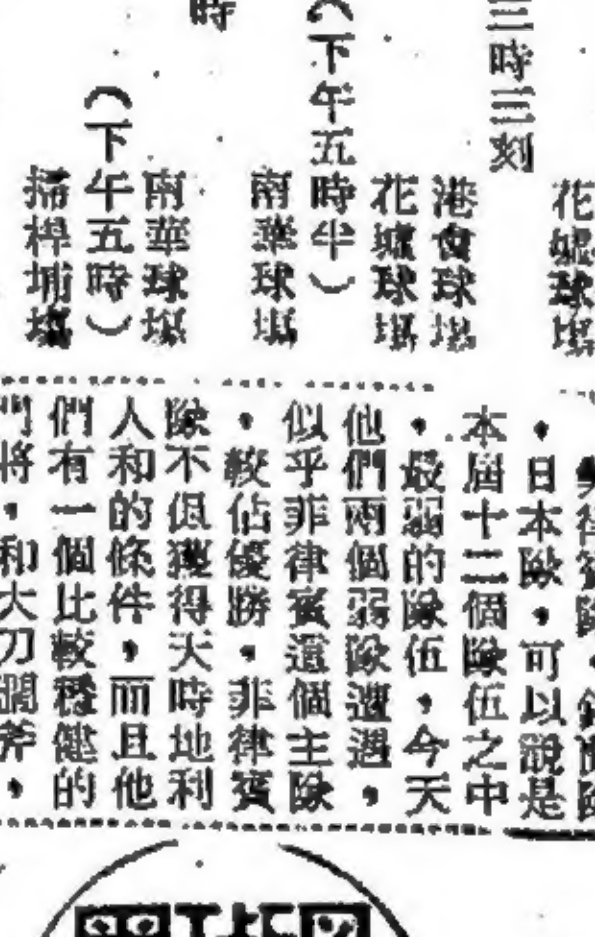 花墟球場
三時三刻
港會球場
花墟球場
（下午五時半）
南華球場
時
南華球場
（下午五時）
掃桿埔場
律賓隊，
，日本隊，可以說是
本屆十二個隊伍之中
，最弱的隊伍，今天
他們兩個弱隊遭遇，
似乎菲律賓這個主隊
，較佔優勝，菲律賓
隊不但獲得天時地利
人和的條件，而且他
們有一個比較穩健的
門將，和大刀闊斧，